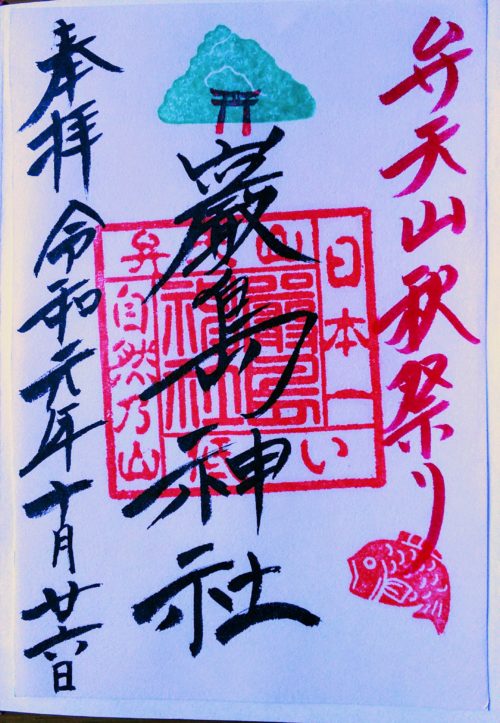 弁天山秋祭り
巌島神社
奉拝 令和元年十月廿六日
日本一
い
山
弁
自然乃山